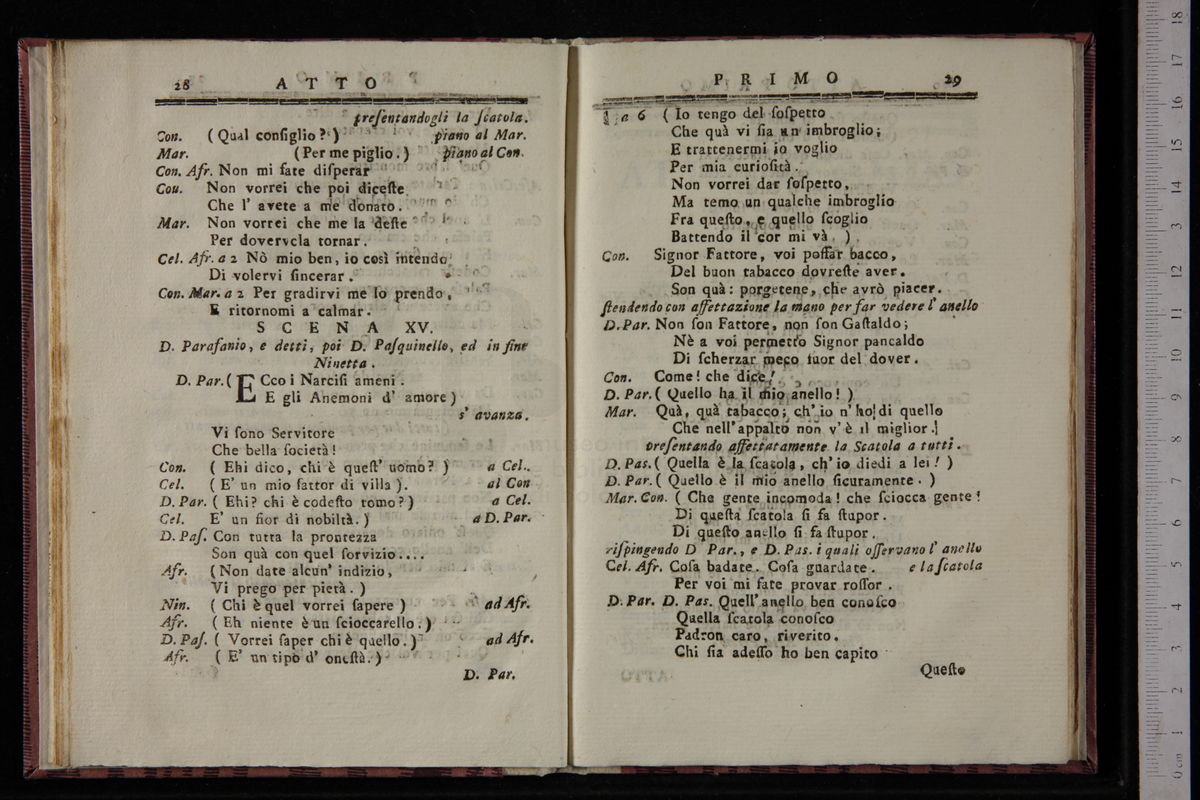 28 ATTO
preſentandogli la ſcatola.
Con. (Qual conſiglio?) piano al Mar.
Mar. (Per me piglio.) piano al Con.
Con. Afr. Non mi fate diſperar
Cou. Non vorrei che poi diceſte
Che l' avete a me donato.
Mar. Non vorrei che me la deſte
Per dovervela tornar.
Cel. Afr. a 2 Nò mio ben, io così intendo
Di volervi ſincerar.
Con. Mar. a 2 Per gradirvi me lo prendo,
E ritornomi a calmar.
SCENA XV.
D. Parafanio, e detti, poi D. Paſquinello, ed in fine
Ninetta.
D. Par. (ECco i Narciſi ameni.
E gli Anemoni d' amore)
s' avanza.
Vi ſono Servitore
Che bella ſocietà!
Con. ( Ehi dico, chi è queſt' uomo? ) a Cel.
Cel. ( E' un mio fattor di villa ). al Con
D. Par. ( Ehi? chi è codeſto tomo?) a Cel.
Cel. E' un fior di nobiltà.) a D. Par.
D. Paſ. Con tutta la prontezza
Son quà con quel ſorvizio....
Afr. (Non date alcun' indizio,
Vi prego per pietà. )
Nin. ( Chi è quel vorrei ſapere ) ad Afr.
Afr. ( Eh niente è un ſcioccarello.)
D. Paſ. ( Vorrei ſaper chi è quello.) ad Afr.
Afr. ( E' un tipo d' oneſtà.)
D. Par.
PRIMO 29
a 6 ( Io tengo del ſoſpetto
Che quà vi ſia un imbroglio;
E trattenermi io voglio
Per mia curioſità.
Non vorrei dar ſoſpetto,
Ma temo un qualche imbroglio
Fra queſto, e quello ſcoglio
Battendo il cor mi và. )
Con. Signor Fattore, voi poſſar bacco,
Del buon tabacco dovreſte aver.
Son quà: porgetene, che avrò piacer.
ſtendendo con affettazione la mano per far vedere l' anello
D. Par. Non ſon Fattore, non ſon Gaſtaldo;
Nè a voi permetto Signor pancaldo
Di ſcherzar meco fuor del dover.
Con. Come! che dice!
D. Par. ( Quello ha il mio anello! )
Mar. Quà, quà tabacco; ch' io n' ho di quello
Che nell' appalto non v' è il miglior.
preſentando affettatamente la Scatola a tutti.
D. Pas. ( Quella è la ſcatola, ch' io diedi a lei! )
D. Par. ( Quello è il mio anello ſicuramente. )
Mar. Con. ( Che gente incomoda! che ſciocca gente!
Di queſta ſcatola ſi fa ſtupor.
Di queſto anello ſi fa ſtupor.
riſpingendo D Par., e D. Pas. i quali oſſervano l' anello
Cel. Afr. Coſa badate. Coſa guardate. e la ſcatola
Per voi mi fate provar roſſor.
D. Par. D. Pas. Quell' anello ben conoſco
Quella ſcatola conoſco
Padron caro, riverito.
Chi ſia adeſſo ho ben capito
Queſto